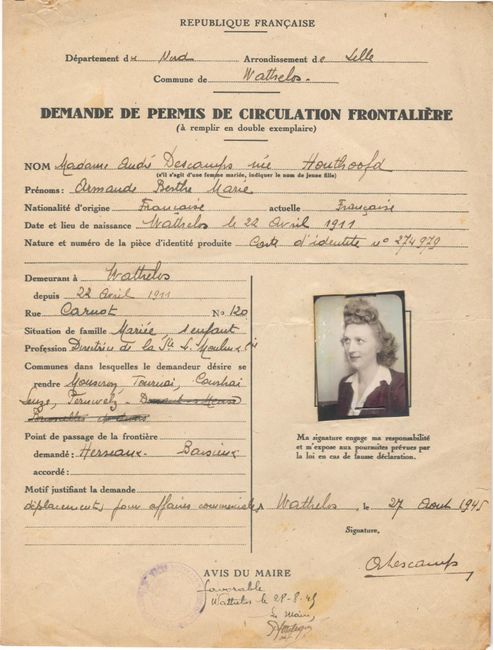 REPUBLIQUE FRANÇAISE
Département du Nord Arrondissement de Lille
Commune de Wattrelos.
DEMANDE DE PERMIS DE CIRCULATION FRONTALIÈRE
(à remplir en double exemplaire)
NOM Madame André Descamps née Houthoofd
(s'il s'agit d'une femme mariée, indiquer le nom de jeune fille)
Prénoms: Armande Berthe Marie
Nationalité d'origine Française actuelle Française
Date et lieu de naissance Wattrelos le 22 Avril 1911
Nature et numéro de la pièce d'identité produite Carte d'identité n° 274979
Demeurant à Wattrelos
depuis 22 avril 1911
Rue Carnot N° 120
Situation de famille Mariée 1 enfant
Profession Directrice de la Sté S. Moulin
Communes dans lesquelles le demandeur désire se
rendre Mouscron, Tournai, Courtrai
Leuze, Peruwelz
Bruxelles
Point de passage de la frontière
demandé: Herseaux Baisieux
accordé:
Motif justifiant la demande
déplacements pour affaires commerciales
Ma signature engage ma responsabilité
et m'expose aux poursuites prévues par
la loi en cas de fausse déclaration.
Wattrelos, le 27 Aout 1945
Signature,
ADescamps
AVIS DU MAIRE
favorable
Wattrelos le 28-8-45
Le Maire,